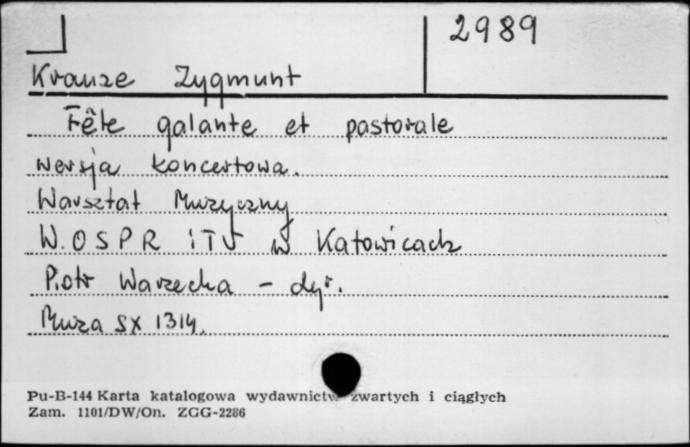 2989
Krauze Zygmunt
Fête galante et pastorale
wersja koncertowa.
Warsztat Muzyczny
W.OSPR i TV w Katowicach
Piotr Warzecha - dyr.
Muza SX 1314.
Pu-B-144 Karta katalogowa wydawnictw zwartych i ciągłych
Zam. 1101/DW/On. ZGG-2286